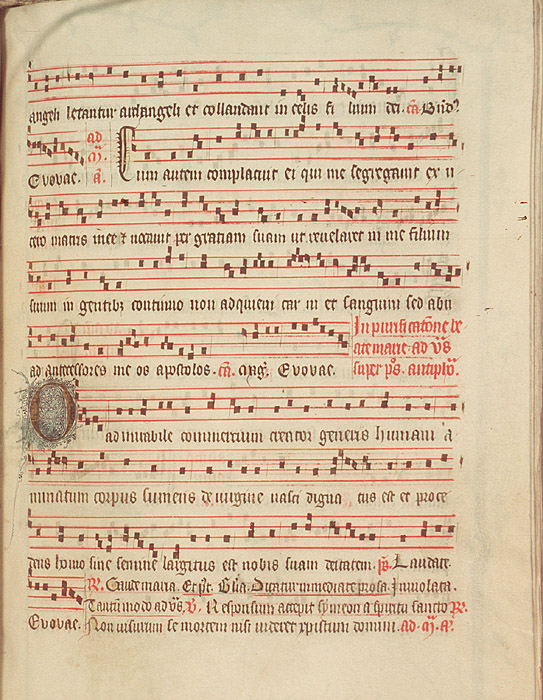 angeli letantur archangeli et collaudant in celis filium dei. cā. Bn̄d
Evovae. ad m̄. ā. Cum autem complacuit ei qui me segregavit ex u
tero matris mee et vocavit per gratiam suam ut revelaret in me filium
suum in gentibꝫ continuo non adquievi carni et sanguini sed abii
ad antecessores meos apostolos. cā. Evovae. In purificatōne be
ate marie ad vs̄
super ps̄. antiph̄.
O admirabile commercium creator generis humani a
nimatum corpus sumens de virgine nasci dignatus est et proce
dens homo sine semine largitus est nobis suam deitatem. ps̄. Laudate.
R. Gaude maria. Et p̄t. Gl̄ia. Dicatur immediate prosa. Inviolata.
Evovae. Tantūmodo ad vs̄. V. Responsum accepit symeon a spiritu sancto R.
Non visurum se mortem nisi videret xpistum domini. ad. m̄. ā.